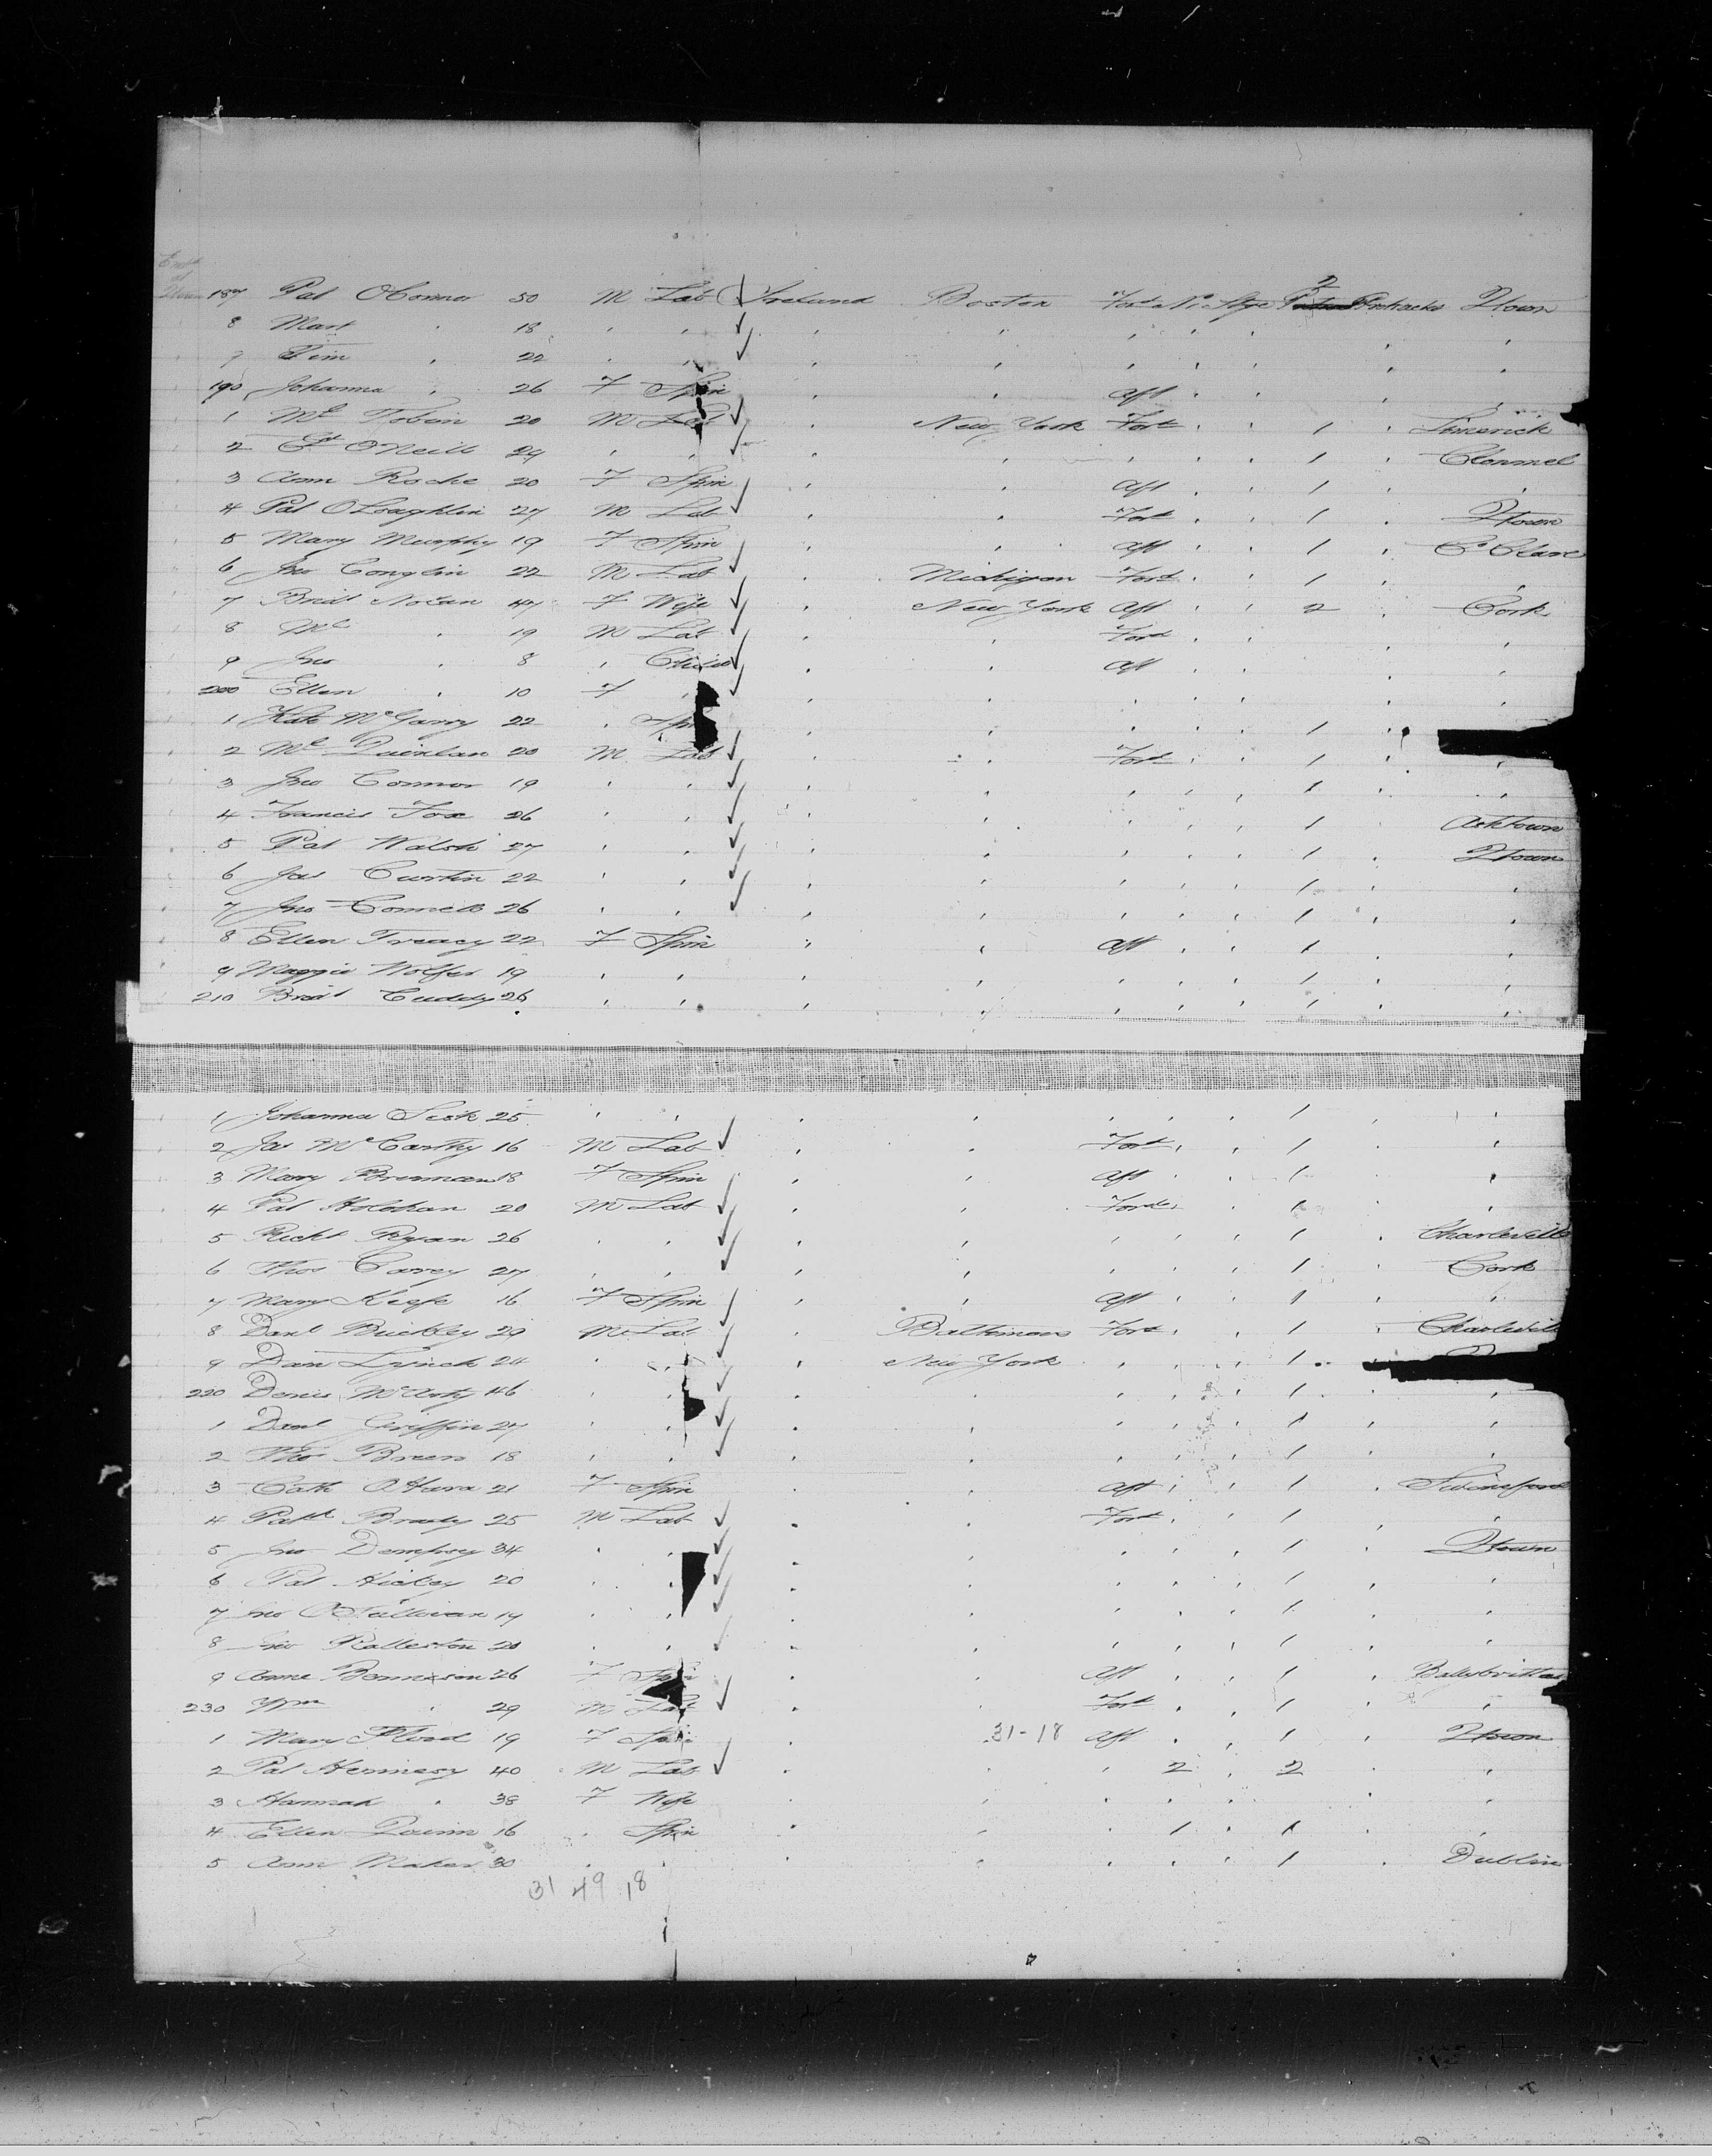 187 Pat OConnor 50 M Lab Ireland Boston Qtown
8 Mart " 18 " "
9 Tim " 22 " "
190 Johanna " 26 F Spin " " Aft
1 Ml Tobin 20 M Lab " New York Ford " " 1 " Limerick
2 Ed ONeill 24 " " " " " " " 1 " Clonmel
3 Ann Roche 20 F Spin " " Aft " " 1 " "
4 Pat OLoughlin 27 M Lab " " Ford " " 1 " Qtown
5 Mary Murphy 19 F Spin " " Aft " " 1 " Co Clare
6 Jno Conglin 22 M Lab " Michigan Ford " " 1 " "
7 Brid Nolan 47 F Wife " New York Aft " " 2 " Cork
8 Ml " 19 M Lab " " Ford " " " "
9 Jno " 8 " Child " " Aft " " " "
200 Ellen " 10 F " " " " " " " "
1 Kate McGarry 22 " Spin " " " " " 1 "
2 Ml Quinlan 20 M Lab " " Ford " " 1 " "
3 Jno Connor 19 " " " " " " " 1 " "
4 Francis Fox 26 " " " " " " " 1 " Asktown
5 Pat Walsh 27 " " " " " " " 1 " Qtown
6 Jas Curtin 22 " " " " " " " 1 " "
7 Jno Connell 26 " " " " " " " 1 " "
8 Ellen Treacy 22 F Spin " " Aft " " 1 " "
9 Maggie Wolfer 19 " " " " " " " 1 " "
210 Brid Cuddy 26 " " " " " " " 1 " "
1 Johanna Sisk 25 " " " " " " " 1 " "
2 Jas McCarthy 16 M Lab " " Ford " " 1 " "
3 Mary Brennan 18 F Spin " " Aft " " 1 " "
4 Pat Holohan 20 M Lab " " Ford " " 1 " "
5 Richd Ryan 26 " " " " " " " 1 " Charleville
6 Thos Carey 27 " " " " " " " 1 " Cork
7 Mary Keefe 16 F Spin " " Aft " " 1 " "
8 Danl Buckley 29 M Lab " Baltimore Ford " " 1 " Charleville
9 Dan Lynch 24 " " " New York " " " 1 "
220 Denis McArty 46 " " " " " " " 1 " "
1 Danl Griffin 27 " " " " " " " 1 " "
2 Thos Breen 18 " " " " " " " 1 " "
3 Cath OHara 21 F Spin " " Aft " " 1 " Swineford
4 Patk Brady 25 M Lab " " Ford " " 1 " "
5 Jno Dempsey 34 " " " " " " " 1 " Qtown
6 Pat Hickey 20 " " " " " " " 1 " "
7 Jno OSullivan 19 " " " " " " " 1 " "
8 Jno Ralleston 20 " " " " " " " 1 " "
9 Anne 26 F Spin " " Aft " " 1 " Ballybrittas
230 Wm " 29 M Lab " " Ford " " 1 " "
1 Mary Flood 19 F Spin " 31-18 Aft " " 1 " Qtown
2 Pat Hennesy 40 M Lab " " " 2 " 2 " "
3 Hannah " 38 F Wife " " " " " " "
4 Ellen Quinn 16 " Spin " " " 1 " 1 " "
5 Ann Maher 30 " " " " " " " 1 " Dublin
31 49 18